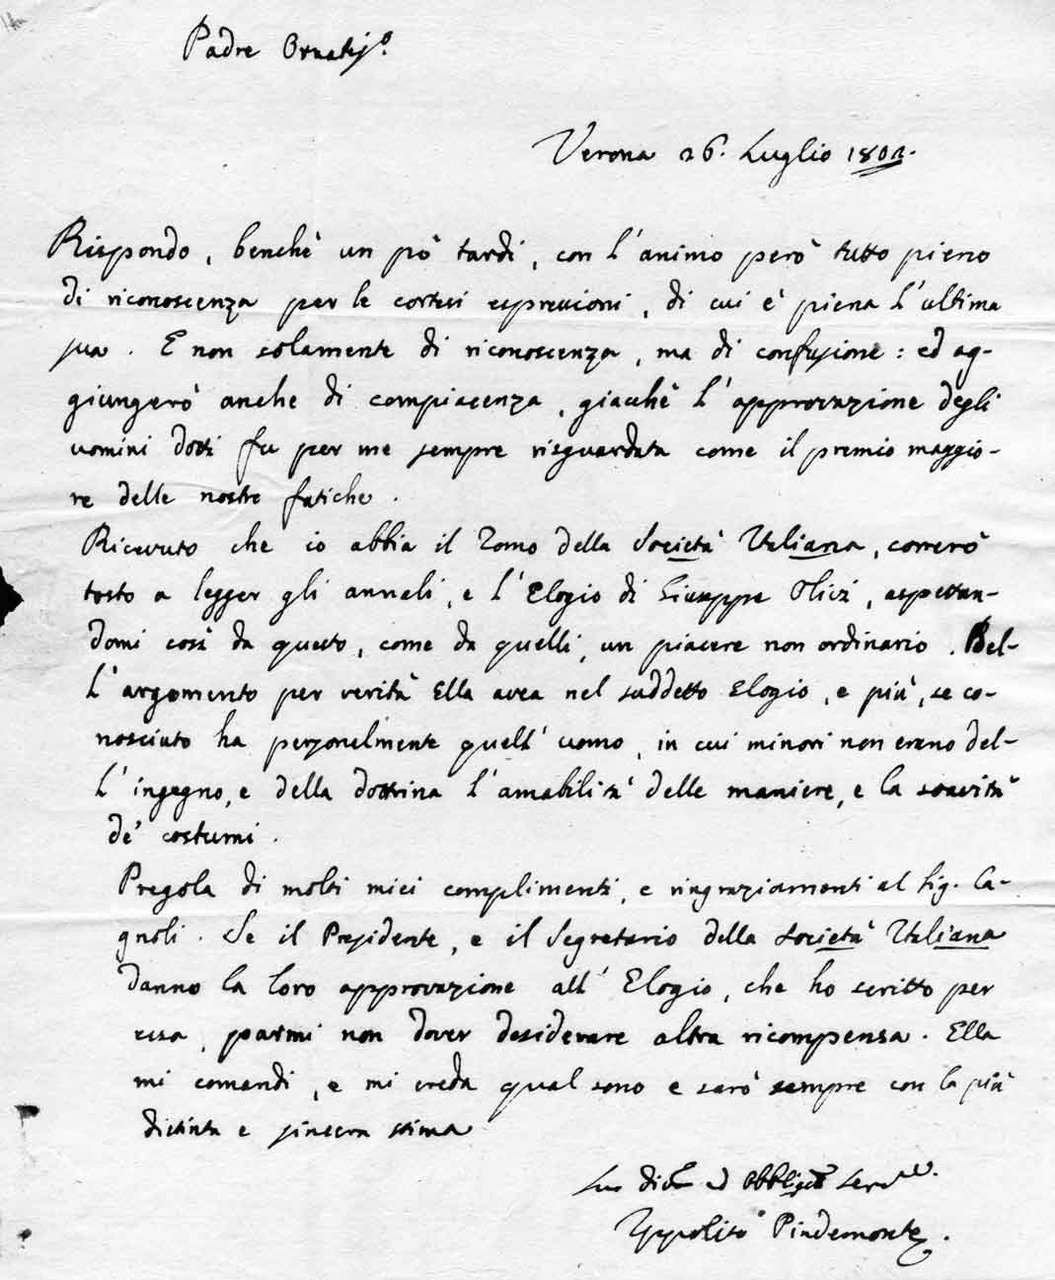 Padre Ornatiss.º
Verona 26. Luglio 1802.
Rispondo, benchè un pò tardi, con l'animo però tutto pieno
di riconoscenza per le cortesi espressioni, di cui è piena l'ultima
sua. E non solamente di riconoscenza, ma di confusione: ed ag-
giungerò anche di compiacenza, giacchè l'approvazione degli
uomini dotti fu per me sempre risguardata come il premio maggio-
re delle nostre fatiche.
Ricevuto che io abbia il Tomo della Società Italiana, correrò
tosto a legger gli annali, e l'Elogio di Giuseppe Olivi, aspettan-
domi così da questo, come da quelli, un piacere non ordinario. Bel-
l'argomento per verità Ella avea nel suddetto Elogio, e più, se co-
nosciuto ha personalmente quell'uomo, in cui minori non erano del-
l'ingegno, e della dottrina l'amabilità delle maniere, e la soavità
de' costumi.
Pregola di molti miei complimenti, e ringraziamenti al Sig. Ca-
gnoli. Se il Presidente, e il Segretario della Società Italiana
danno la loro approvazione all'Elogio, che ho scritto per
essa, parmi non dover desiderare altra ricompensa. Ella
mi comandi, e mi creda qual sono e sarò sempre con la più
distinta e sincera stima
Suo ed Obbligmo
Ippolito Pindemonte.